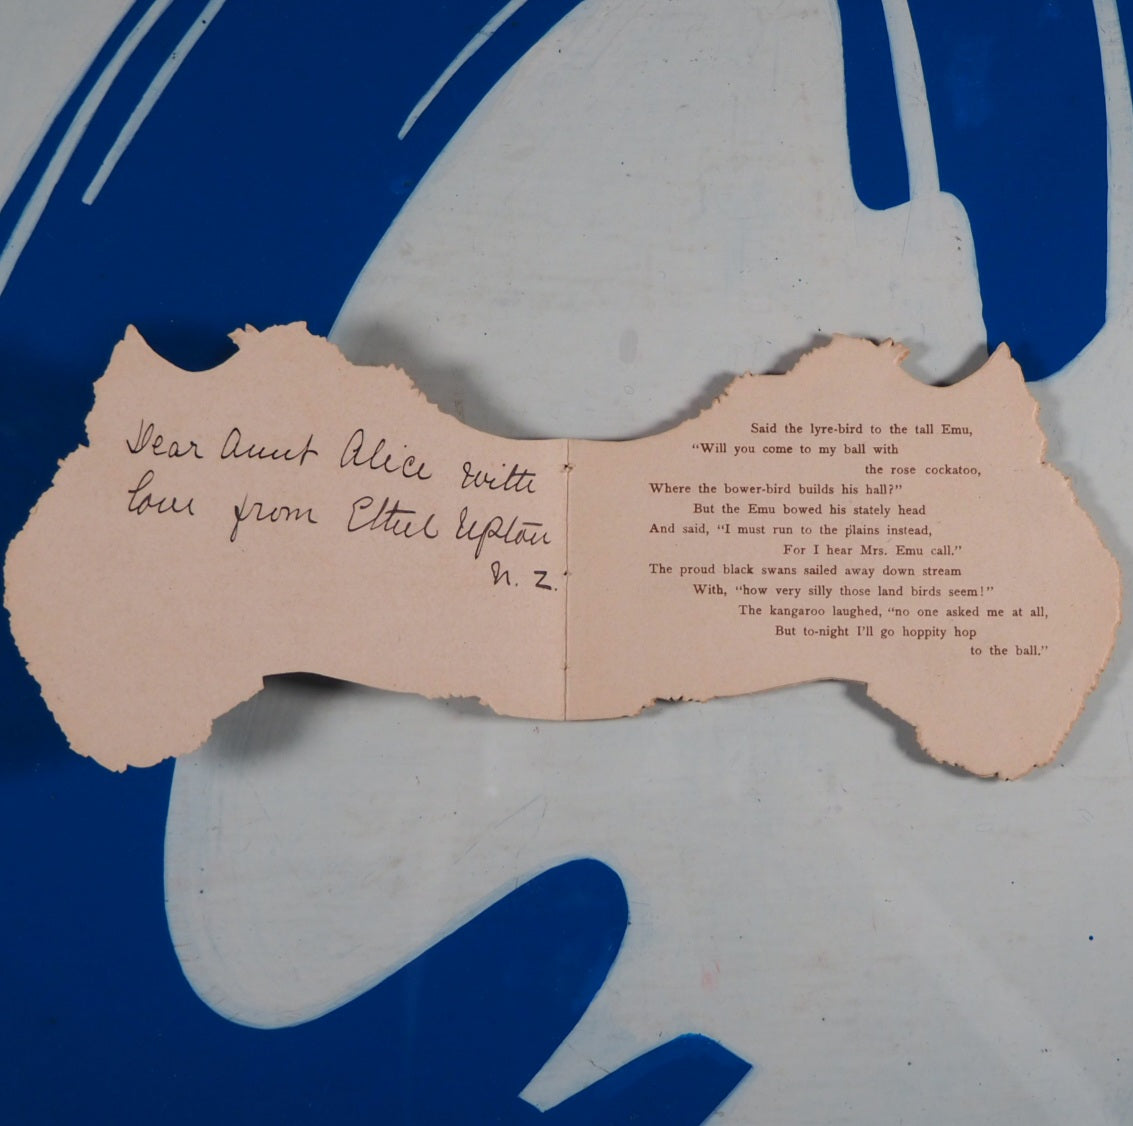 Dear Aunt Alice with
love from Ethel Upton
N. Z.
Said the lyre-bird to the tall Emu,
“Will you come to my ball with
the rose cockatoo,
Where the bower-bird builds his hall?”
But the Emu bowed his stately head
And said, “I must run to the plains instead,
For I hear Mrs. Emu call.”
The proud black swans sailed away down stream
With, “how very silly those land birds seem!”
The kangaroo laughed, “no one asked me at all,
But to-night I’ll go hoppity hop
to the ball.”